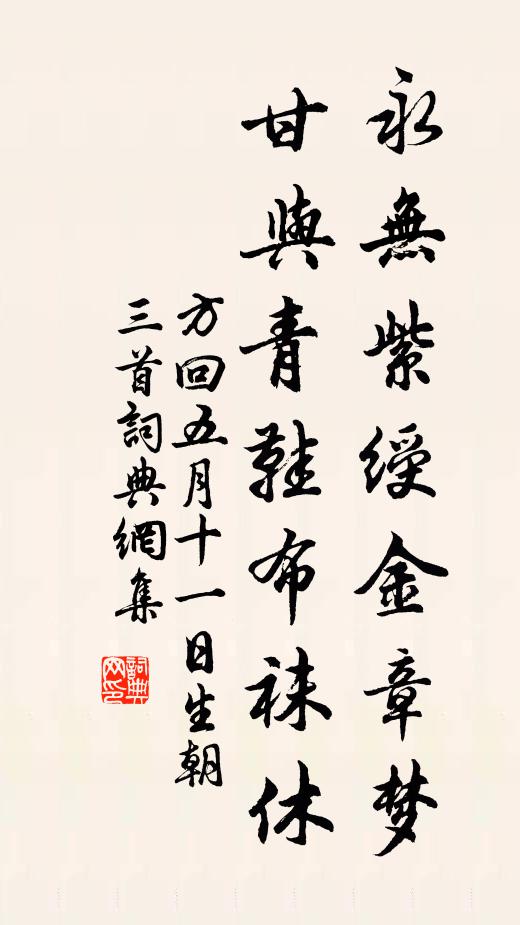 永無紫綬金章梦
甘與青鞋布袜休
方回五月十一日生朝
三首詞典網集
詞典
网印